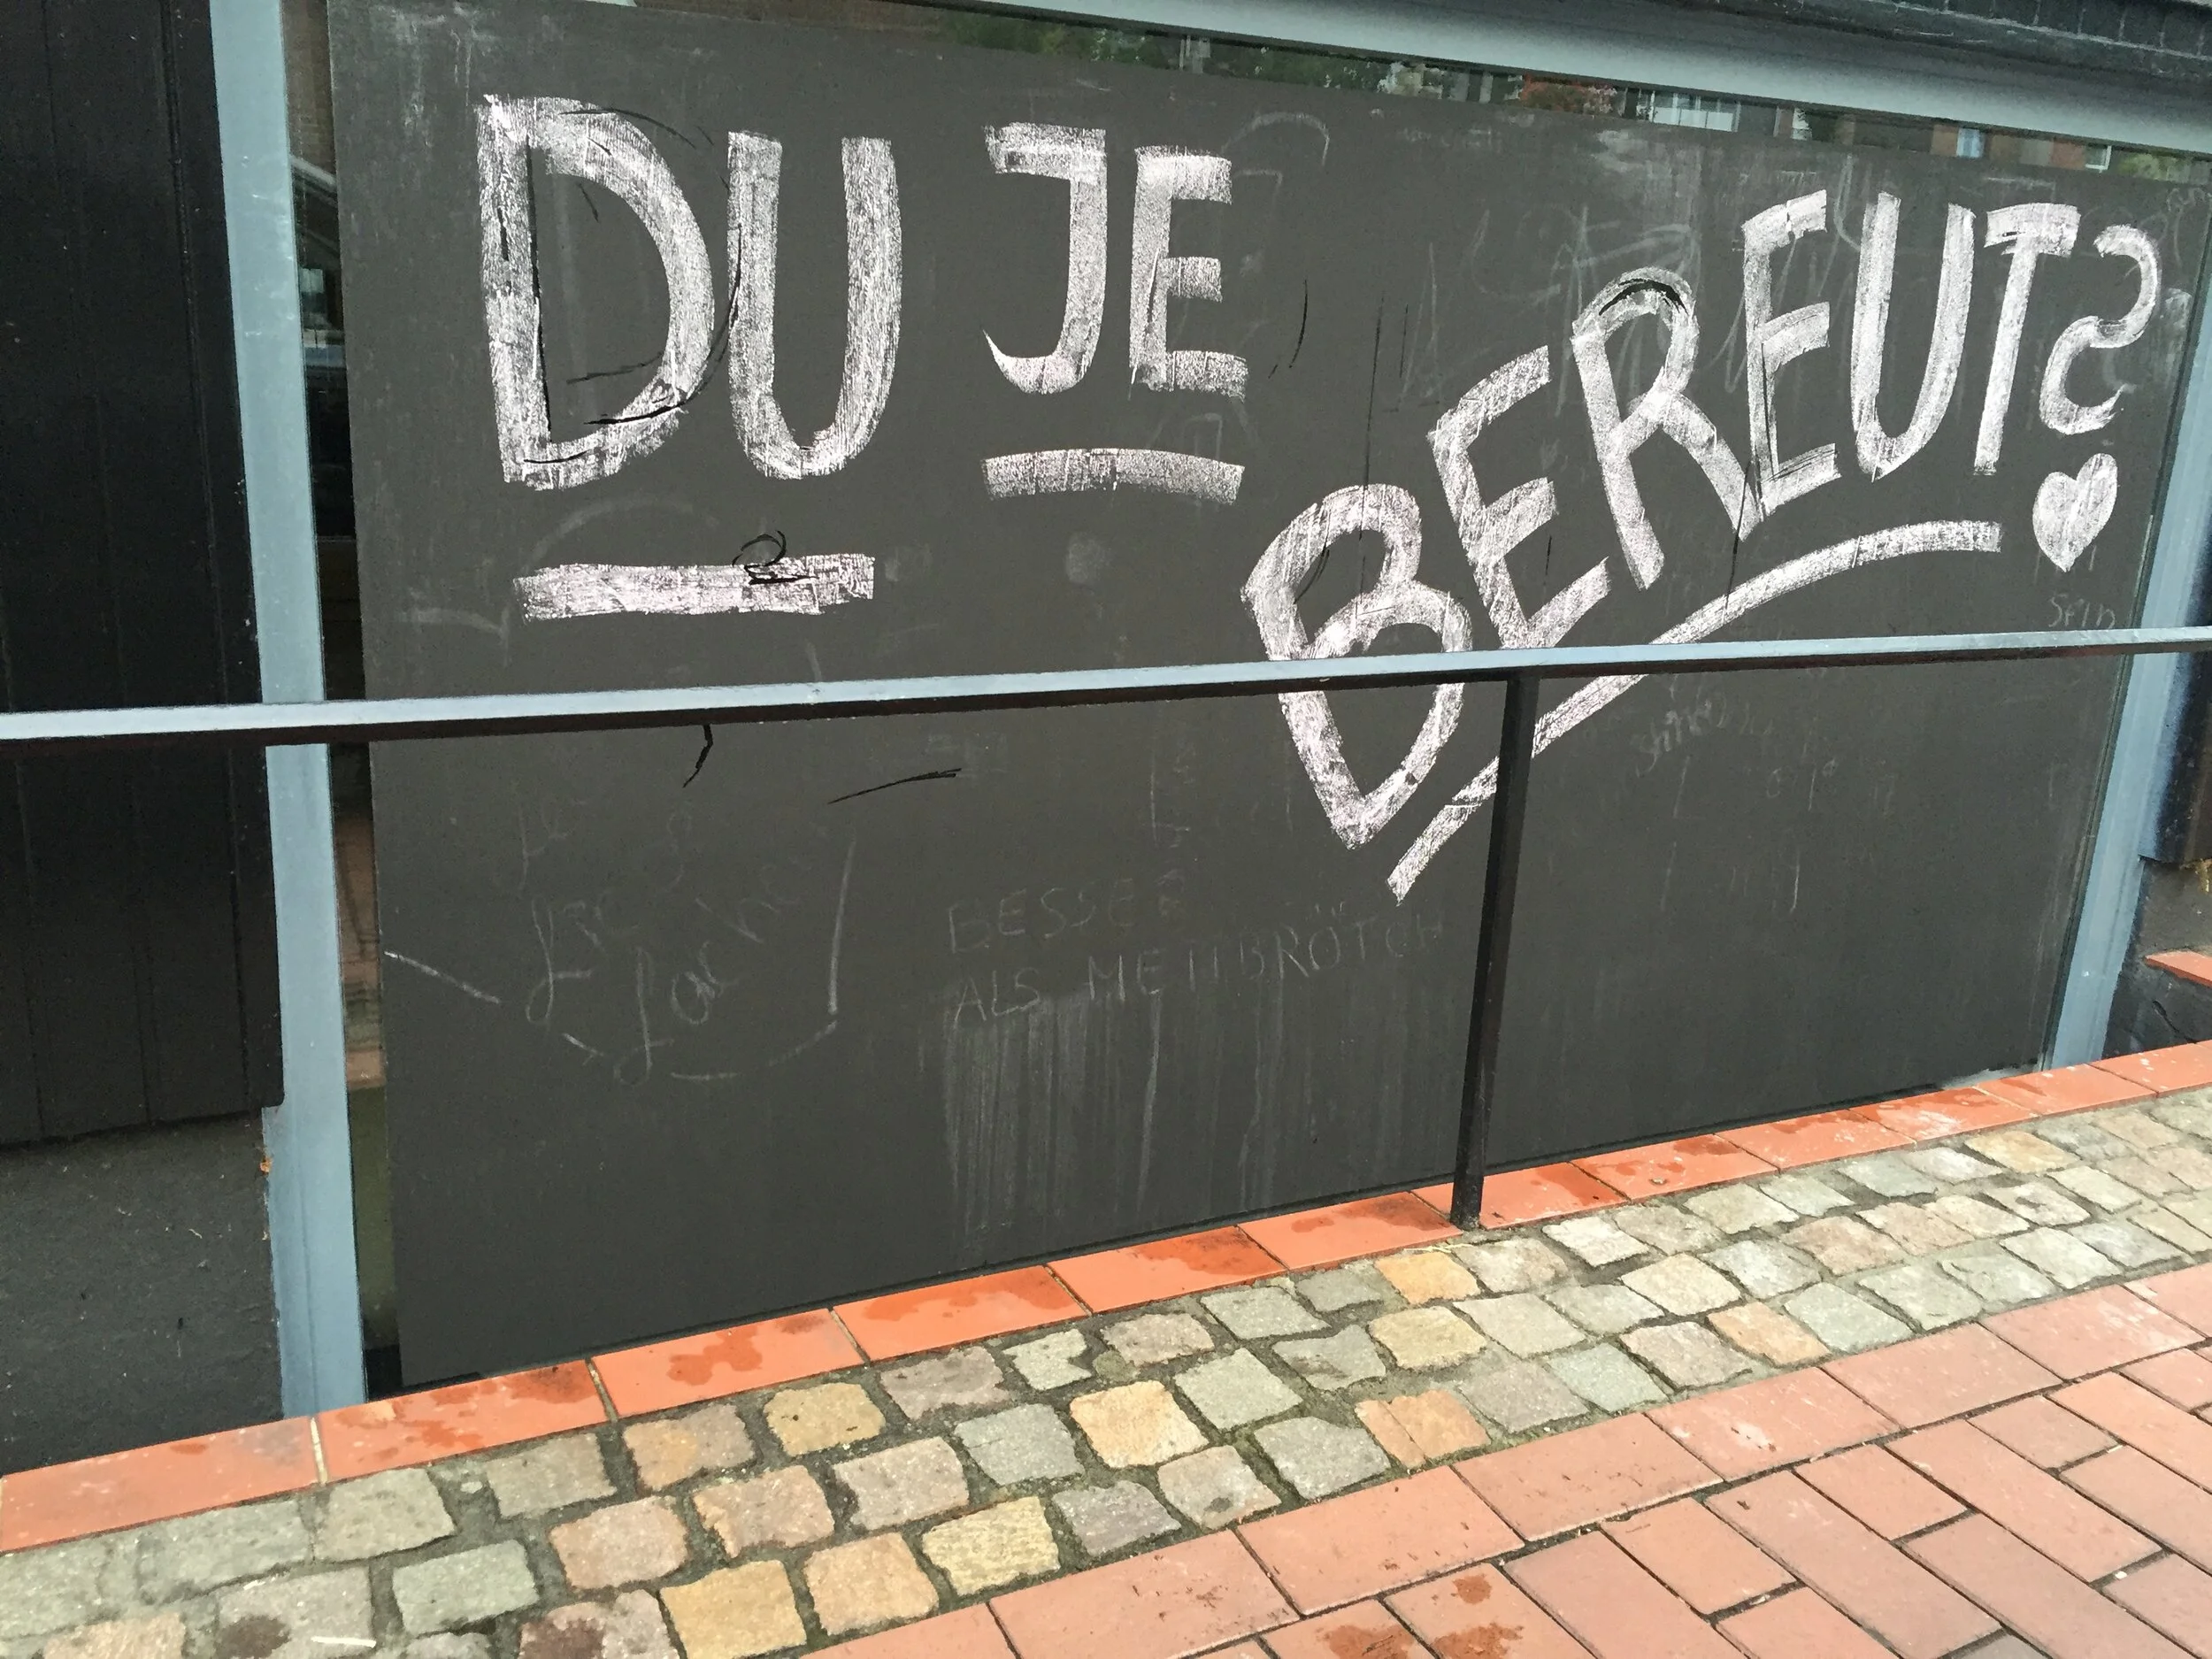 DU JE
BEREUT?
BESSER
ALS METTBRÖTCH